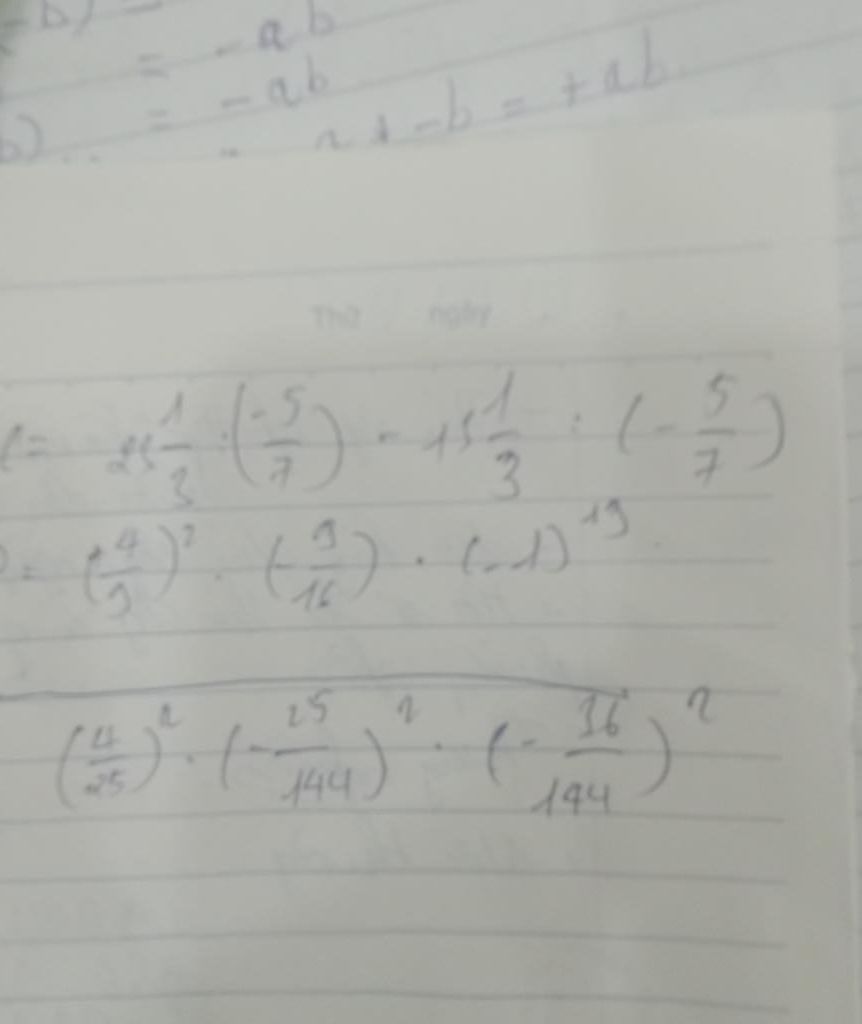 -b)
= -ab
b) = -ab
-b = +ab
Thứ ngày
= 25 1/3 : (-5/7) - 15 1/3 : (-5/7)
= (4/9)² . (-9/16) . (-1)¹⁹
(4/25)² . (-25/144)² . (-36/144)²